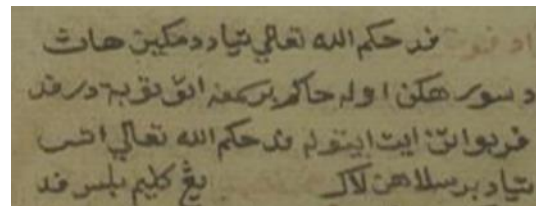 فد حكم الله تعالي تياد دمكين هات
د سوره كن اوله حاكم برسمفه اتق توبة در فد
فربواتن ايت ايتوله فد حكم الله تعالي اتس
تياد برسلاهن لاك يڠ كليم بلس فد